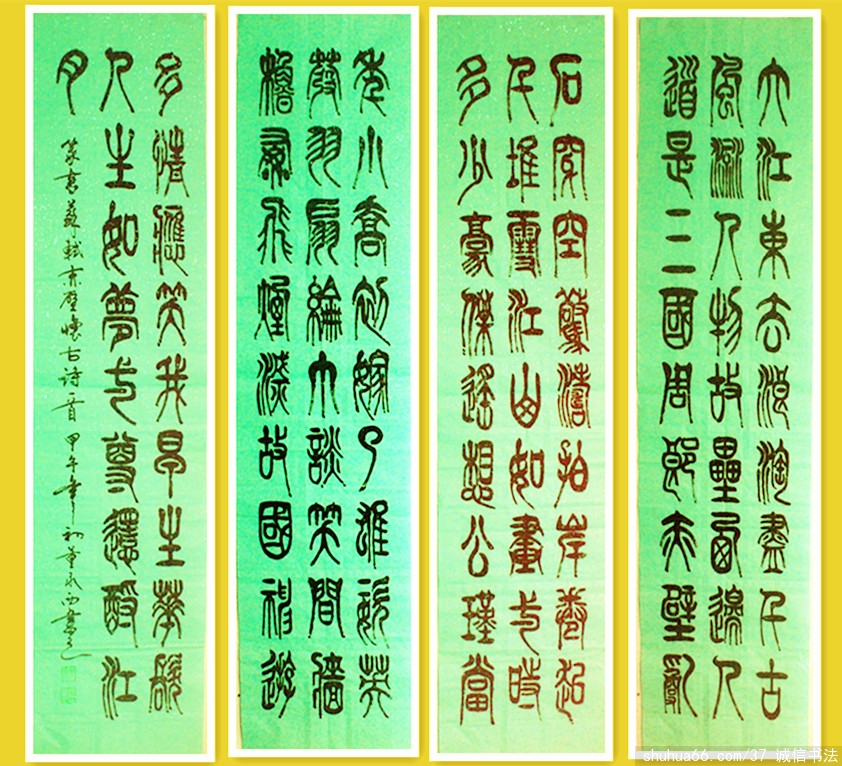 大江東去浪淘盡千古
風流人物故壘西邊人
道是三國周郎赤壁亂
石穿空驚濤拍岸卷起
千堆雪江山如畫一時
多少豪傑遙想公瑾當
年小喬初嫁了雄姿英
發羽扇綸巾談笑間檣
櫓灰飛煙滅故國神遊
多情應笑我早生華髮
人生如夢一尊還酹江
月
篆書蘇軾赤壁懷古诗一首甲午年初董永西書
shuhua66.com/37 诚信书法